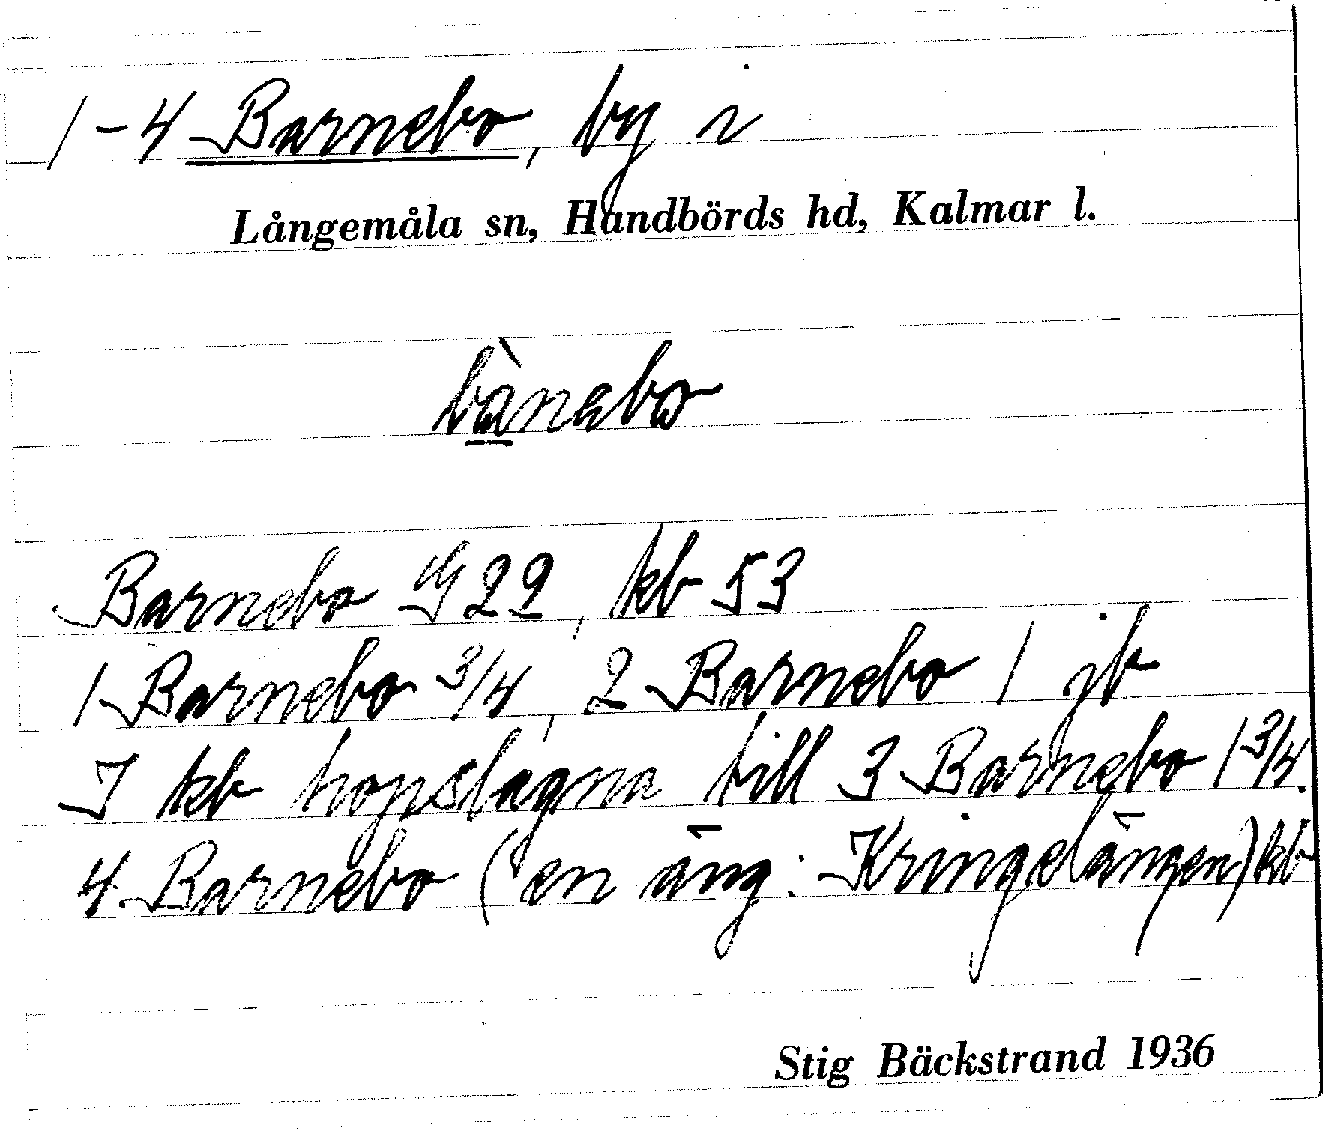 1-4 Barnebo, by i
Långemåla sn, Handbörds hd, Kalmar l.
bànebo
Barnebo G22, kb 53
1 Barnebo 3/4, 2 Barnebo 1 jb
I kb hopslagna till 3 Barnebo 1 3/4.
4 Barnebo (en äng: Kringelängen) kb
Stig Bäckstrand 1936